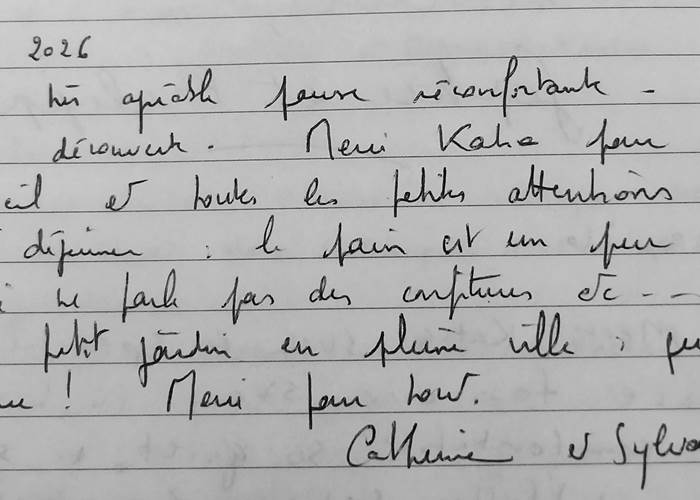 2026
très agréable pause réconfortante -
découverte. Merci Kaha pour
eil et toutes les petites attentions
déjeuner : le pain est un peu
i ne parle pas des confitures etc --
petit jardin en pleine ville ;
! Merci pour tout.
Catherine et Sylva